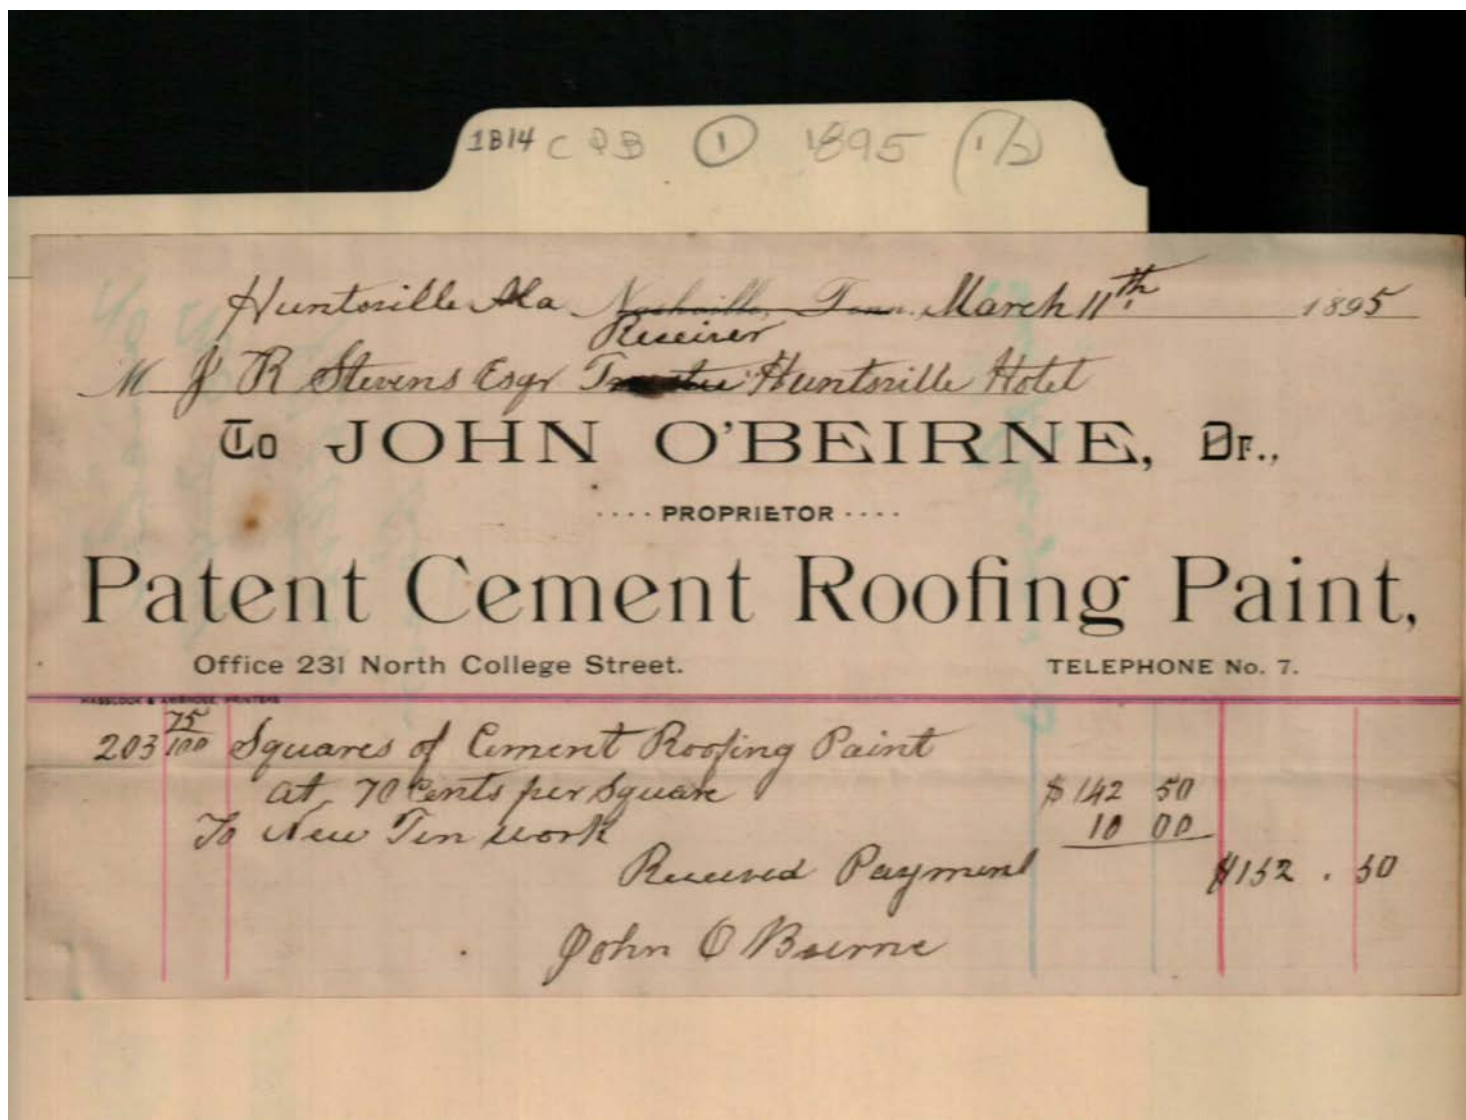 1814 C & B (1) 1895 (1/2)
Huntsville Ala Nashville, Tenn. March 11th. 1895
Receiver
M J R Stevens Esqr Trustee Huntsville Hotel
To JOHN O'BEIRNE, Dr.,
.... PROPRIETOR ....
Patent Cement Roofing Paint,
Office 231 North College Street. TELEPHONE No. 7.
HASSLOCK & AMBROSE, PRINTERS
203 75/100 Squares of Cement Roofing Paint
at 70 Cents per Square $142 50
To New Tin work 10 00
Received Payment $152.50
John O Beirne